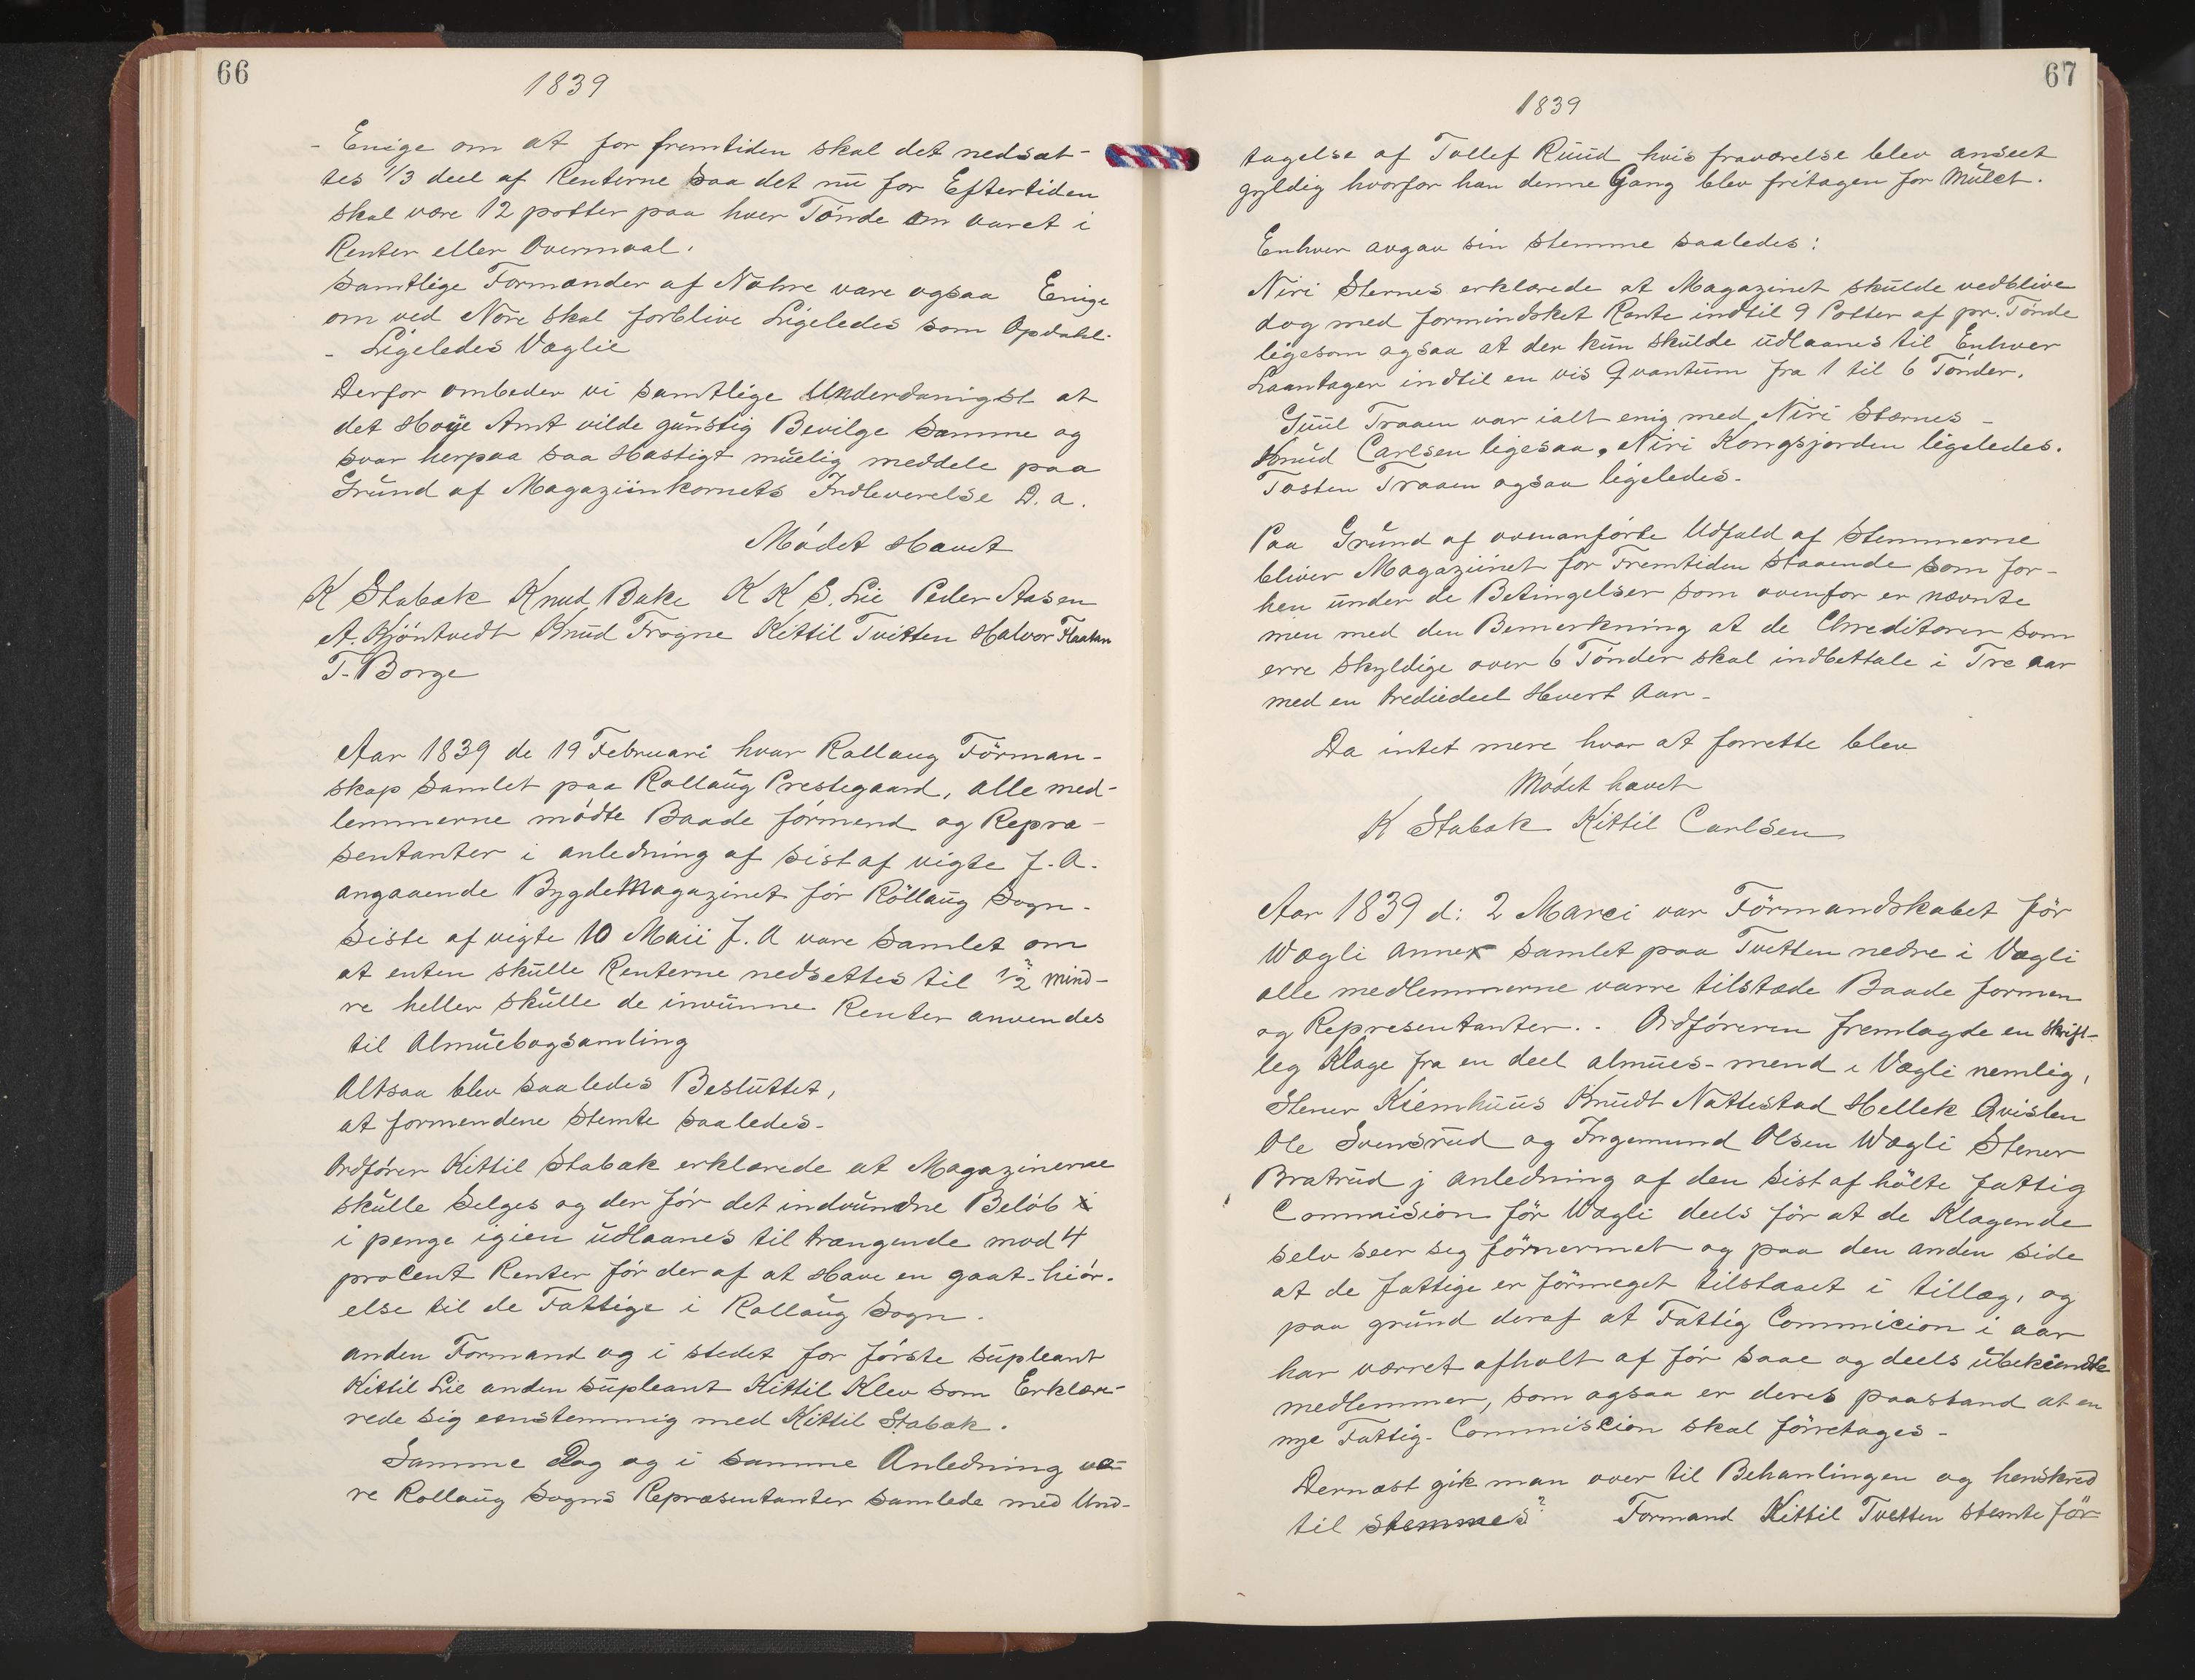 66
1839
- Enige om at for fremtiden skal det nedsat-
tes 1/3 deel af Renterne saa det nu for Eftertiden
skal være 12 potter paa hver Tønde om aaret i
Renter eller Overmaal.
Samtlige Formænder af Nohre vare ogsaa Enige
om ved Nore skal forblive Ligeledes som Opdahl.
- Ligeledes Væglie
Derfor ombeder vi samtlige Underdanigst at
det Høye Amt vilde gunstig Bevilge Samme og
svar herpaa saa Hastigt muelig meddele paa
Grund af Magaziinkornets Indleverelse D. a.
Mødet Hævet
K Stabæk Knud Bake K K S. Lie Peder Aasen
A. Kjöntvedt Knud Frogne Kittil Tvitten Halvor Flaatan
T. Borge
Aar 1839 de 19 Februari hvar Rollaug Förman-
skap samlet paa Rollaug Prestegaard, alle med-
lemmerne mødte Baade førmend og Repræ-
sentanter i anledning af sist af vigte f. A.
angaaende BygdeMagazinet før Röllaug Sogn.
Siste af vigte 10 Maii f. A vare samlet om
at enten skulle Renterne nedsettes til 1/2 ? mind-
re heller skulle de invunne Renter anvendes
til Almuebogsamling
Altsaa blev saaledes Besluttet,
at formendene stemte saaledes-
Ordfører Kittil Stabæk erklærede at Magazinerne
skulle selges og der før det indvundne Beløb x
i penge igien udlaanes til trængende mod 4
procent Renter før deraf at Have en gaat-hiør-
else til de Fattige i Rollaug Sogn.
anden Formand og i stedet for første supleant
Kittil Lie anden supleant Kittil Klev som Erklære-
rede sig eenstemmig med Kittil Stabæk.
Samme Dag og i samme Anledning va-
re Rollaug Sogns Repræsentanter samlede med Und-
67
1839
tagelse af Tollef Ruud hvis fraværelse blev anseet
gyldig hvorfor han denne Gang blev fritagen for Mulct.
Enhver avgav sin stemme saaledes:
Niri Sternes erklærede at Magazinet skulde vedblive
dog med formindsket Rente indtil 9 Potter af pr. Tønde
ligesom ogsaa at der kun skulde udlaanes til Enhver
Laantager indtil en vis Qvantum fra 1 til 6 Tønder.
Guul Traaen var ialt enig med Niri Stærnes -
Knud Carlsen ligesaa, Niri Kongsjorden ligeledes.
Tosten Traaen ogsaa ligeledes-
Paa Grund af ovenanførte Udfald af Stemmerne
bliver Magaziinet for Fremtiden staaende som for-
hen under de Betingelser som ovenfor er nævnte
men med den Bemerkning at de Chreditorer som
erre skyldige over 6 Tønder skal indbettale i Tre aar
med en trediedeel Hvert Aar-
Da intet mere hvar at forrette blev
Mødet hævet
K Stabæk Kittil Carlsen
Aar 1839 d: 2 Marci var Förmandskabet för
Wægli annex samlet paa Tvetten nedre i Vægli
alle medlemmerne varre tilstæde Baade formen
og Representanter.. Ordføreren fremlagde en Skrift-
leg Klage fra en deel almues-mend i Vægli nemlig,
Stener Kiemhuus Knudt Nattestad Hellek Qvislen
Ole Svensrud og Ingemund Olsen Wægli Stener
Bratrud j anledning af den sist af hölte fattig
Commision för Wægli deels för at de Klagende
selv seer seg förnermet og paa den anden side
at de fattige er förmeget tilstaaet i tillæg, og
paa grund deraf at Fattig Commicion i aar
har værret afholt af før saae og deels ubekiendte
medlemmer, som ogsaa er deres paastand at en
nye Fattig-Commiscion skal förretages-
Dernæst gik man over til Behanlingen og henskred
til stemmes ? Formand Kittil Tvetten stemte för-